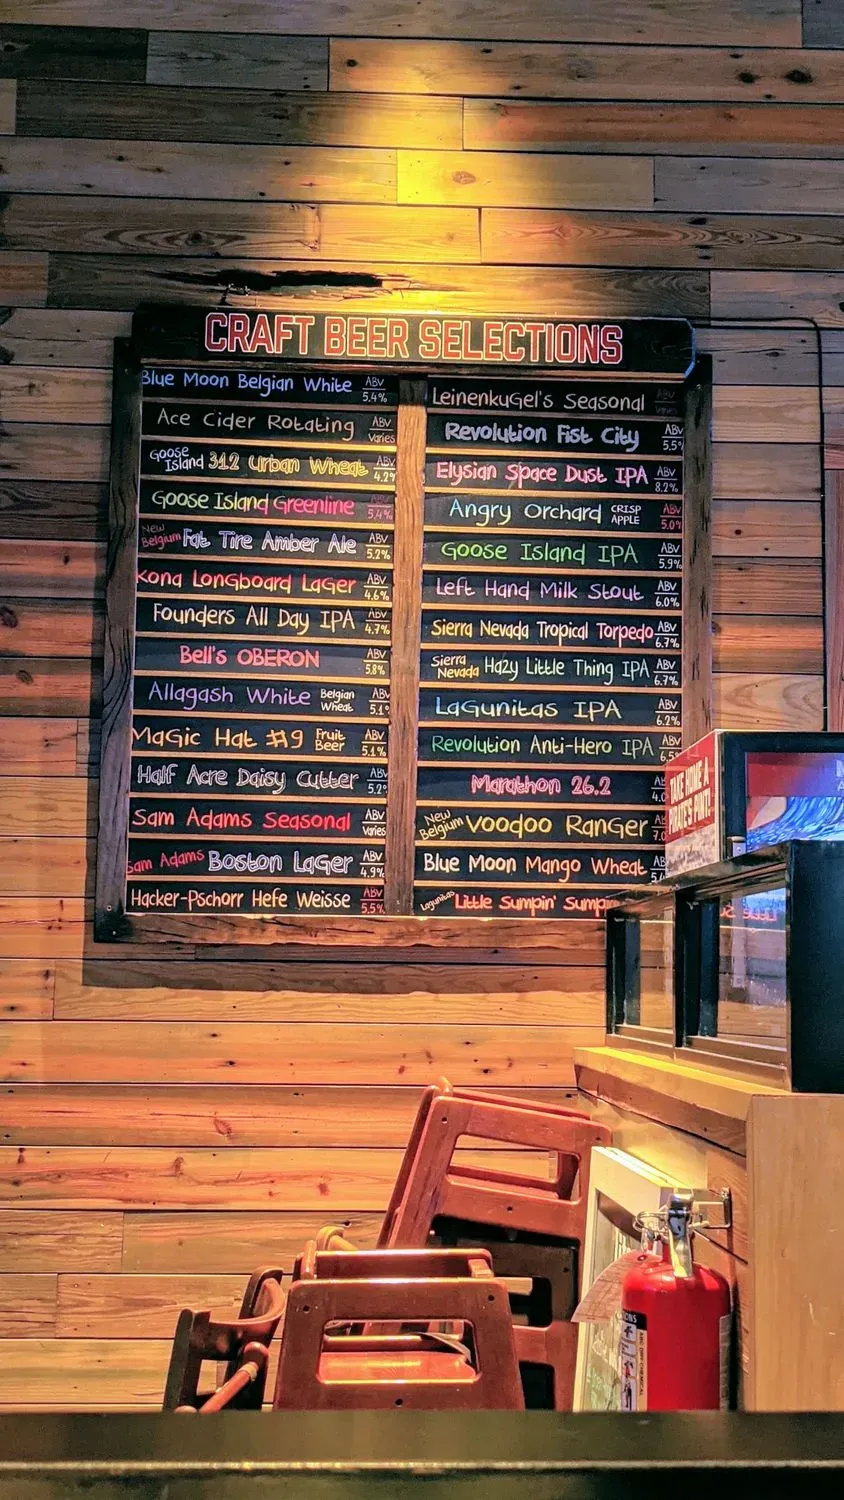 CRAFT BEER SELECTIONS
Blue Moon Belgian White ABV 5.4%
Ace Cider Rotating ABV Varies
Goose Island 312 Urban Wheat ABV 4.2%
Goose Island Greenline ABV 5.4%
New Belgium Fat Tire Amber Ale ABV 5.2%
Kona Longboard Lager ABV 4.6%
Founders All Day IPA ABV 4.7%
Bell's OBERON ABV 5.8%
Allagash White Belgian Wheat ABV 5.1%
Magic Hat #9 Fruit Beer ABV 5.1%
Half Acre Daisy Cutter ABV 5.2%
Sam Adams Seasonal ABV Varies
Sam Adams Boston Lager ABV 4.9%
Hacker-Pschorr Hefe Weisse ABV 5.5%
LeinenkuGel's Seasonal ABV Varies
Revolution Fist City ABV 5.5%
Elysian Space Dust IPA ABV 8.2%
Angry Orchard CRISP APPLE ABV 5.0%
Goose Island IPA ABV 5.9%
Left Hand Milk Stout ABV 6.0%
Sierra Nevada Tropical Torpedo ABV 6.7%
Sierra Nevada Hazy Little Thing IPA ABV 6.7%
Lagunitas IPA ABV 6.2%
Revolution Anti-Hero IPA ABV 6.5
Marathon 26.2
New Belgium Voodoo Ranger
Blue Moon Mango Wheat
Lagunitas Little Sumpin' Sumpin
TAKE HOME A
PINT!